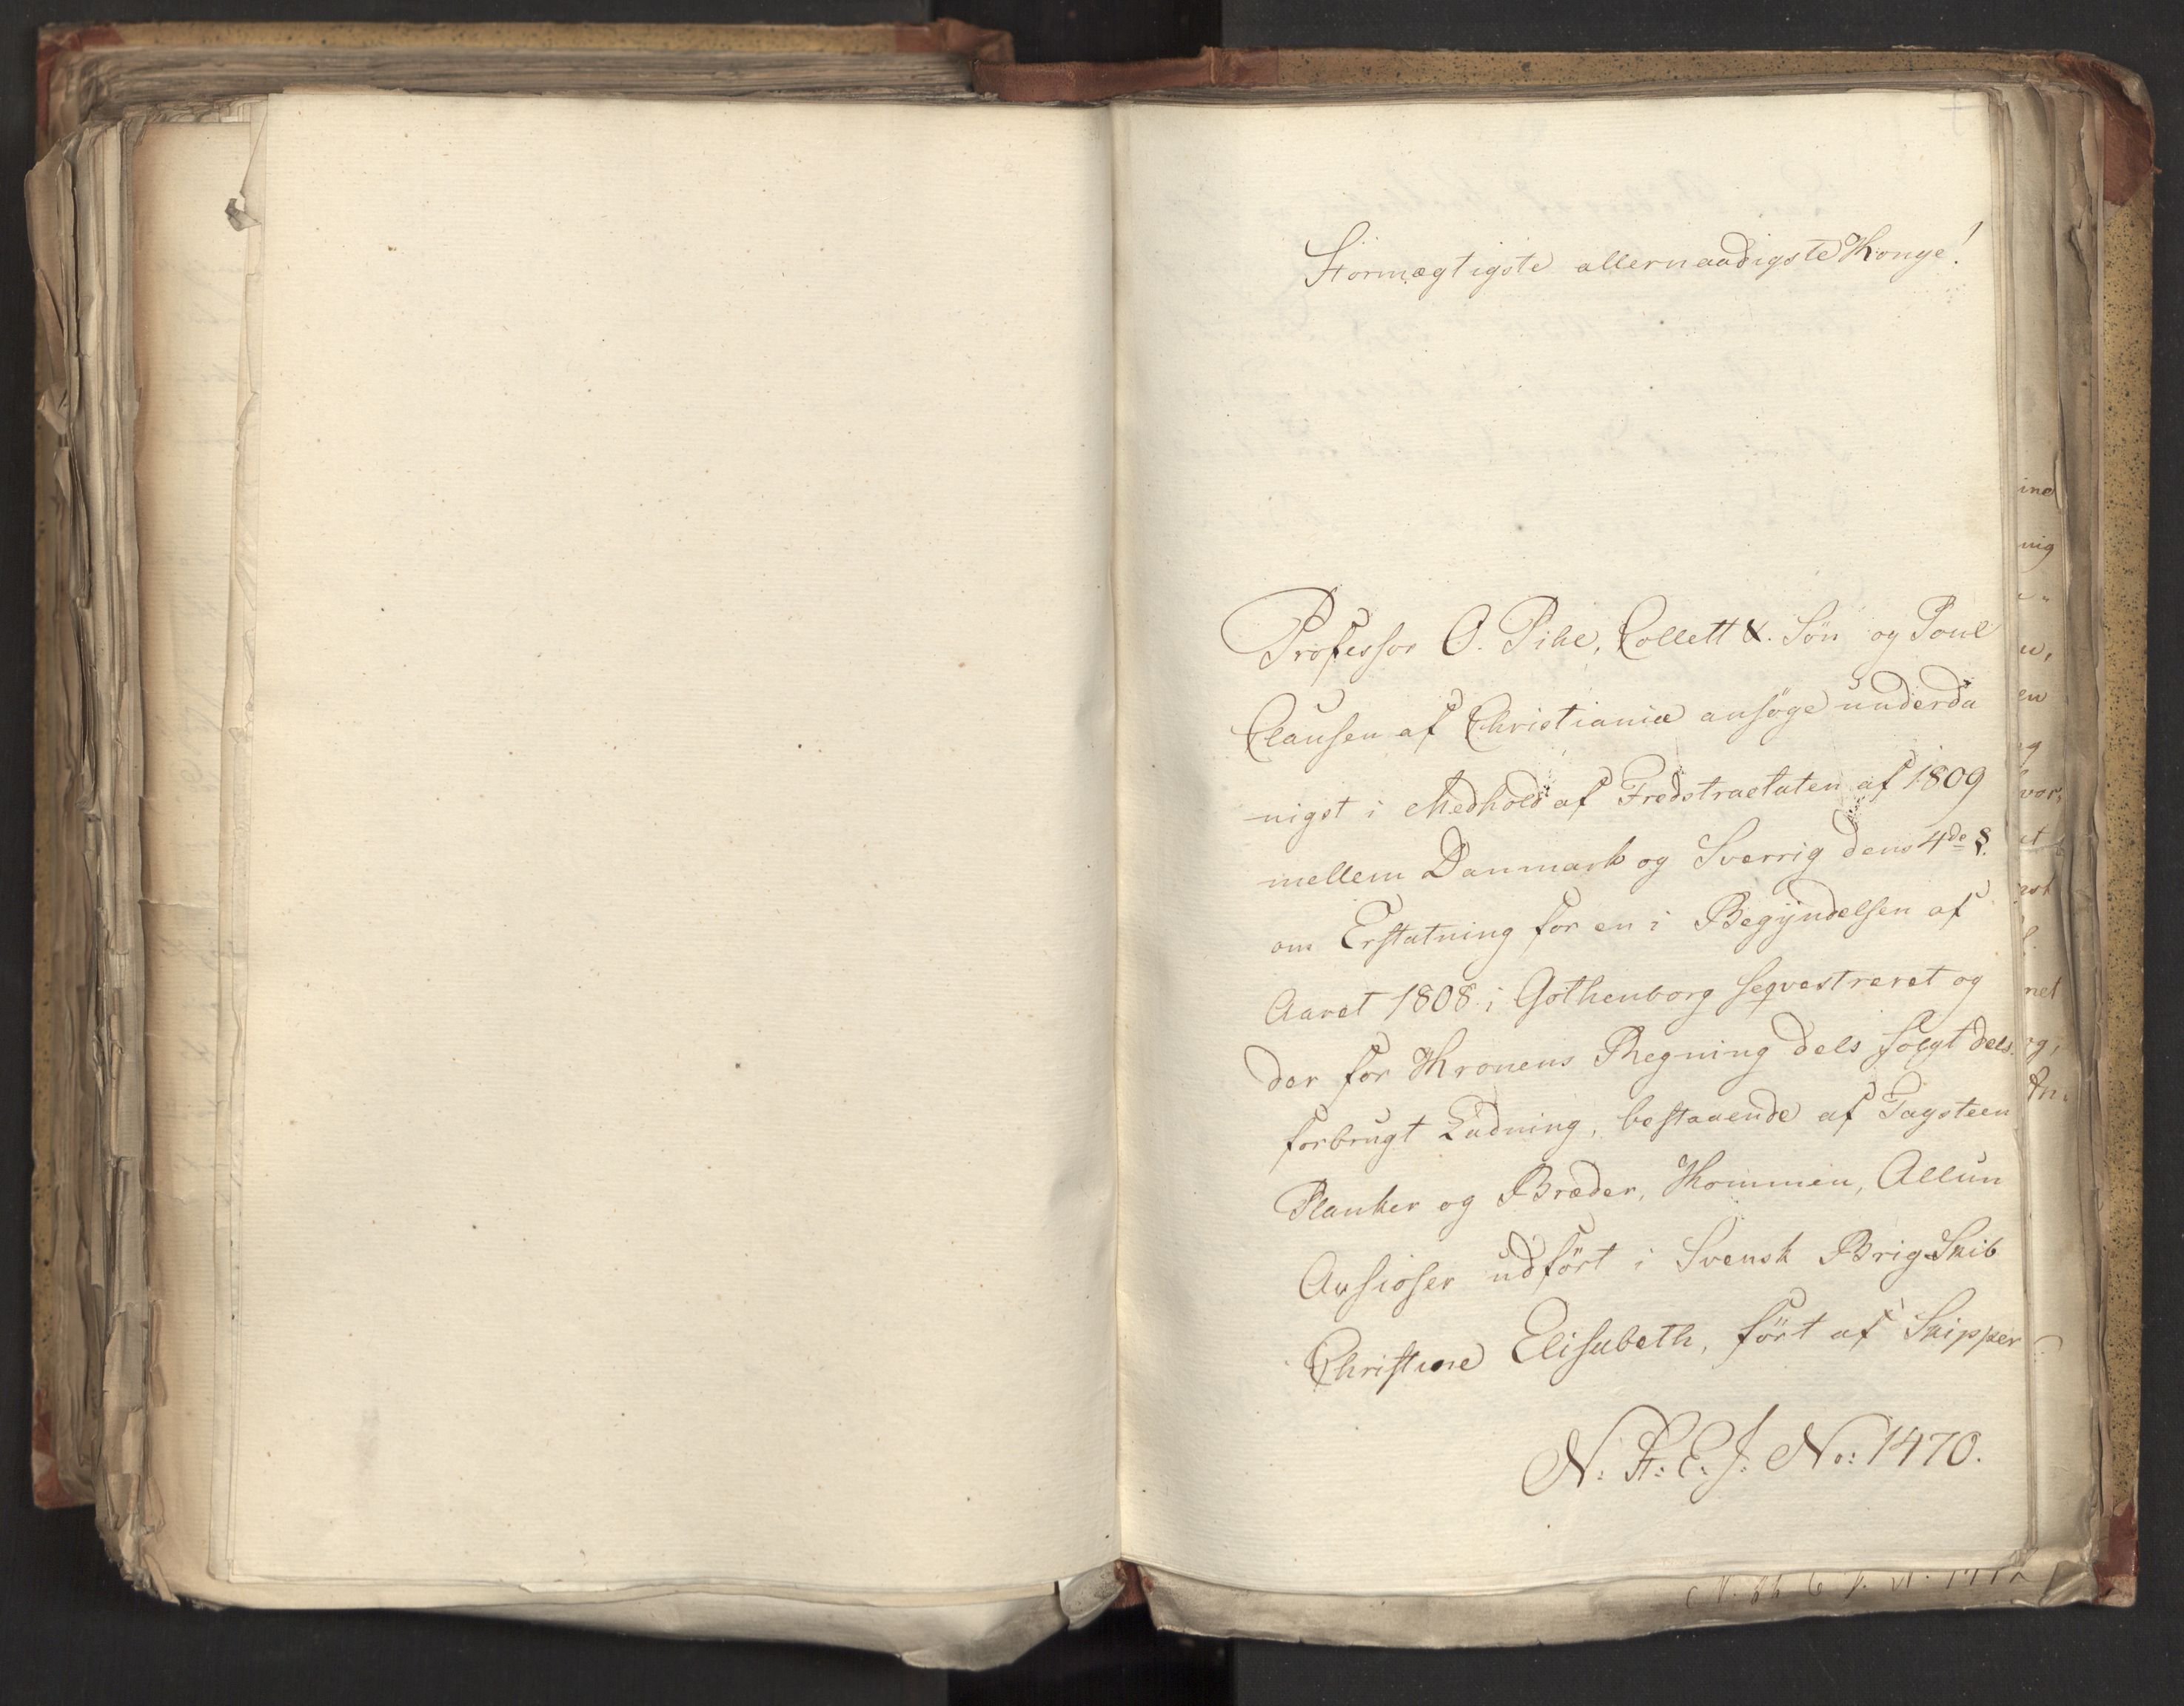 Stormægtigste allernaadigste Konge!
Professor O. Pihl, Collett &. Søn og Poul
Clausen af Christiania ansøge underda
nigst i Medhold af Fredstractaten af 1809
mellem Danmark og Sverrig dens 4de §.
om Erstatning for en i Begyndelsen af
Aaret 1808 i Gothenborg seqvestreret og
der for Kronens Regning dels solgt dels
forbrugt Ladning, bestaaende af Tagsteen
Planker og Bræder, Kommen, Allun
Ansioser udført i Svensk Brig Skib
Christine Elisabeth, ført af Skipper
N: R: E: J: No: 1470.